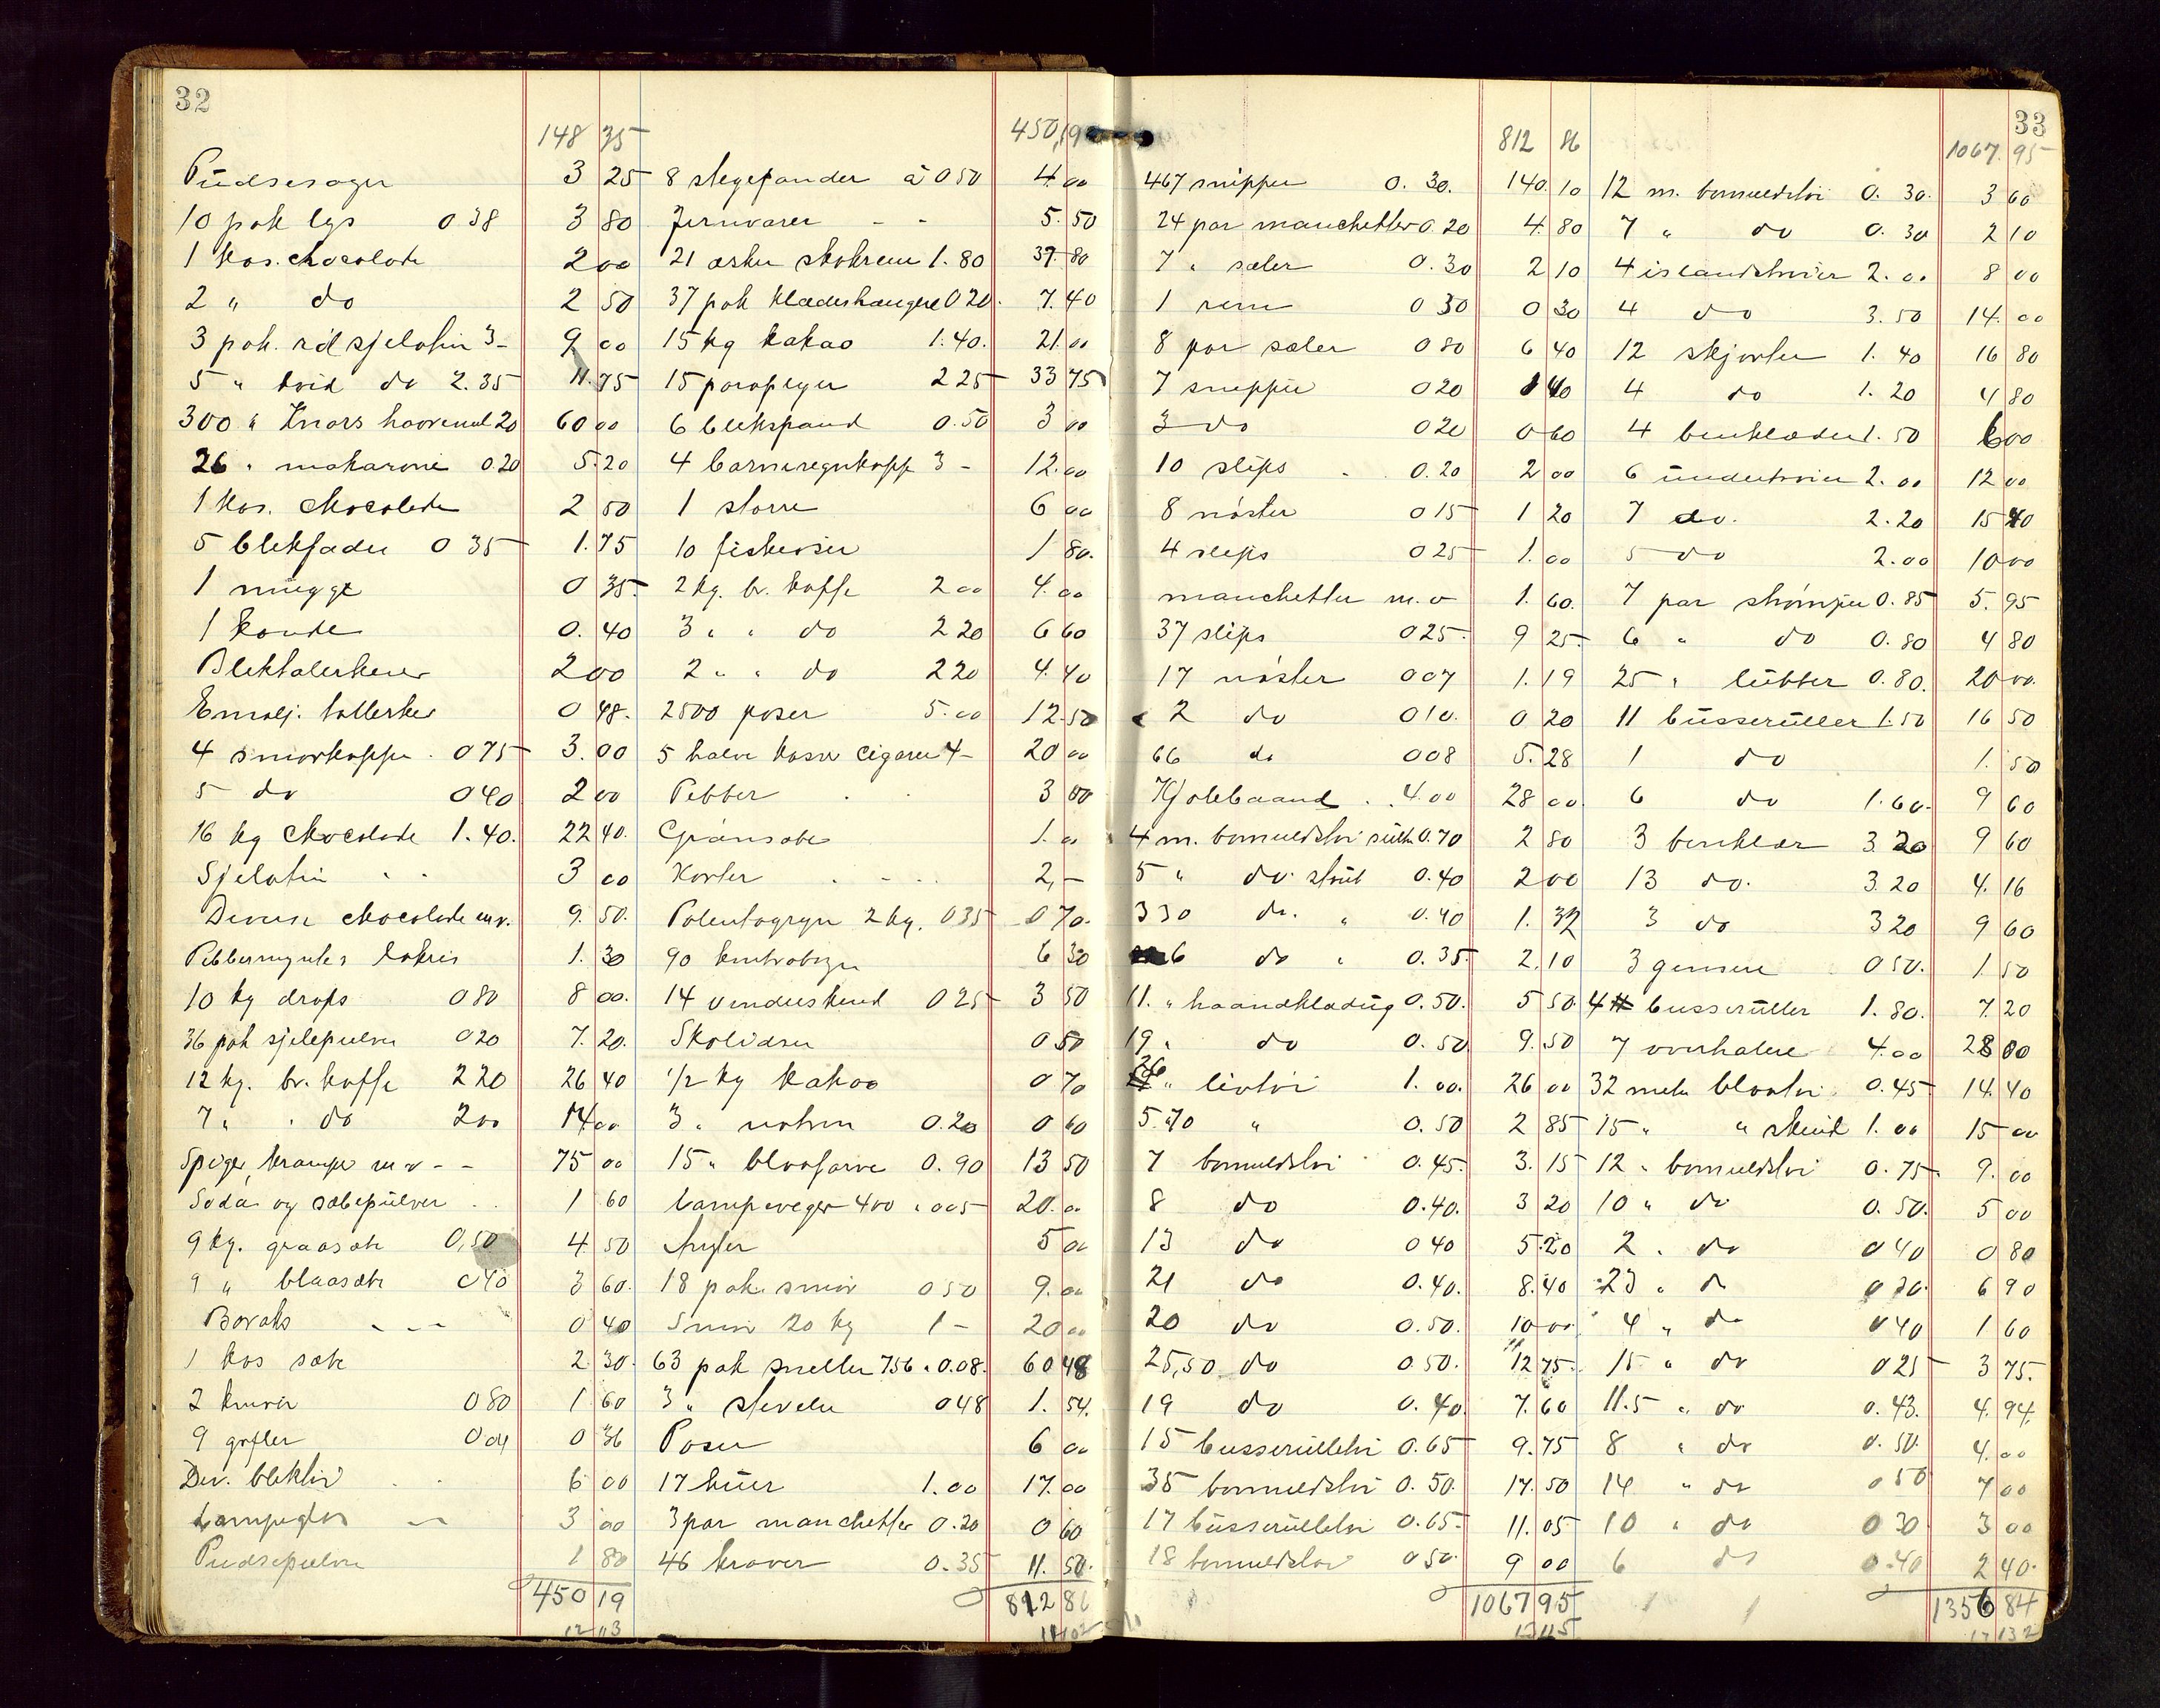 32
148 35
Püdsesager 3 25
10 pak lys 0 38 3 80
1 kas. chocolade 2 00
2 " do 2 50
3 pak. röd sjelatin 3- 9 00
5 " hvid do 2.35 11.75
300 " Knors havremel 20 60 00
26 " makaroni 0.20 5.20
1 kas. chocolade 2 50
5 blekfader 0 35 1.75
1 mugge 0 35
1 kande 0.40
Blektalerkener 2 00
Emalj. tallerker 0 48.
4 smörkopper 0 75 3.00
5 do 0 40 2 00
16 kg chocolade 1.40. 22 40.
Sjelatin 3 00
Diverse chocolade m.v. 9.50.
Pebbermynter lakris 1.30
10 kg drops 0 80 8 00.
36 pak sjelepulver 0 20 7.20.
12 kg. br. kaffe 2 20 26 40
7 " " do 2 00 14 00
Spiger, kramper m v - - 75 00
Soda og sæbepülver 1 60
9 kg. graasæbe 0,50 4 50
9 " blaasæbe 0 40 3 60.
Boraks 0 40
1 kas sæbe 2 30.
2 kniver 0 80 1 60
9 gafler 0 04 0 36
Div. blektöi 6 00
Lampeglas 3 00
Pudsepulver 1 80
450 19
450,19
8 stegepander à 0 50 4.00
Jernvarer - - 5.50
21 æsker skokrem 1.80 37 80
37 pak klædeshængere 0 20. 7.40
15 kg kakao 1.40. 21.00
15 paraplyer 2 25 33 75
6 blekspand 0.50 3 00
4 barneregnkapp 3 - 12.00
1 større 6 00
10 fiskeriser 1 80.
2 kg. br. kaffe 2 00 4.00
3 " " do 2 20 6 60
2 " " do 2 20 4.40
2500 poser 5.00 12.50
5 halve kasser cigarer 4- 20 00
Pebber 3 00
Grönsæbe 1.00
Korter 2,-
Polentagryn 2 kg. 0 35 0 70.
90 6 30
14 vindusskind 0 25 3 50
Skolidser 0 50
1/2 kg kakao 0 70
3 " natron 0.20 0 60
15 " blaafarve 0.90 13 50
Lampeveger 400 " 005 20.00
5 00
18 pak. smör 0 50 9.00
Smör 20 kg 1 - 20 00
63 pak sneller 756 " 0.08. 60 48
3 " stivelse 0 48 1.54.
Poser 6 00
17 huer 1.00 17.00
3 par manchetter 0.20 0 60
46 kraver 0.35 11.50.
812 86
812 86
467 snipper 0.30. 140.10
24 par manchetter 0.20 4.80
7 " seler 0.30 2 10
1 rem 0 30 0 30
8 par seler 0 80 6 40
7 snipper 0 20 1 40
3 do 0 20 0 60
10 slips 0.20 2 00
8 nöster 0 15 1 20
4 slips 0 25 1.00
manchetter m.v 1.60.
37 slips 0 25. 9 25
17 nöster 0 07 1.19
2 do 0 10. 0 20
66 do 0 08 5.28
7 Golvbaand 4.00 28 00
4 m. bomuldstöi 0.70 2 80
5 " do. 0.40 2 00
330 do. " 0.40 1.32
6 do " 0.35. 2.10
11. " haandkladtüg 0.50. 5 50
19 " do 0.50 9.50
26 " livtöi 1.00. 26 00
5.70 " 0.50 2 85
7 bomuldstöi 0.45. 3.15
8 do 0.40. 3 20
13 do 0 40 5.20
21 do 0.40. 8.40
20 do 0.50. 10 00
25,50 do 0.50. 12 75
19 do 0.40. 7.60
15 busserulletöi 0.65 9.75
35 bomuldstöi 0.50. 17.50
17 büsserülletöi 0.65 11.05
18 bomuldstöi 0 50. 9 00
1067 95
33
1067.95
12 m. bomuldstöi 0.30. 3 60
7 " do 0.30 2 10
4 islandströier 2.00 8 00
4 do 3.50 14.00
12 skjorter 1.40 16 80
4 do 1.20 4 80
4 benklæder 1.50 6 00
6 ündertröier 2.00 12 00
7 do. 2.20 15 40
5 do 2.00 10 00
7 par strömper 0.85 5.95
6 " do 0.80 4 80
25 " lübber 0.80. 20 00.
11 büsserüller 1.50 16 50
1 do 1.50
6 do 1.60. 9 60
3 benklær 3 20 9 60
13 do. 3.20 4.16
3 do 3 20 9 60
3 gensere 0 50. 1 50
4 busserüller 1.80. 7.20
7 overhalere 4.00 28 00
32 meter blaatöi 0.45 14.40
15 " " skind 1.00 15 00
12 " bomuldstöi 0.75 9.00
10 " do 0.50. 5 00
2 " do 0 40 0 80
23 " do 0 30. 6 90
4 " do 0 40 1 60
15 " do 0 25 3 75.
11.5 " do 0.43. 4.94
8 " do 0.50. 4.00
14 " do 0 50 7 00
10 " do 0 30 3 00
6 do 0.40 2 40.
1356 84